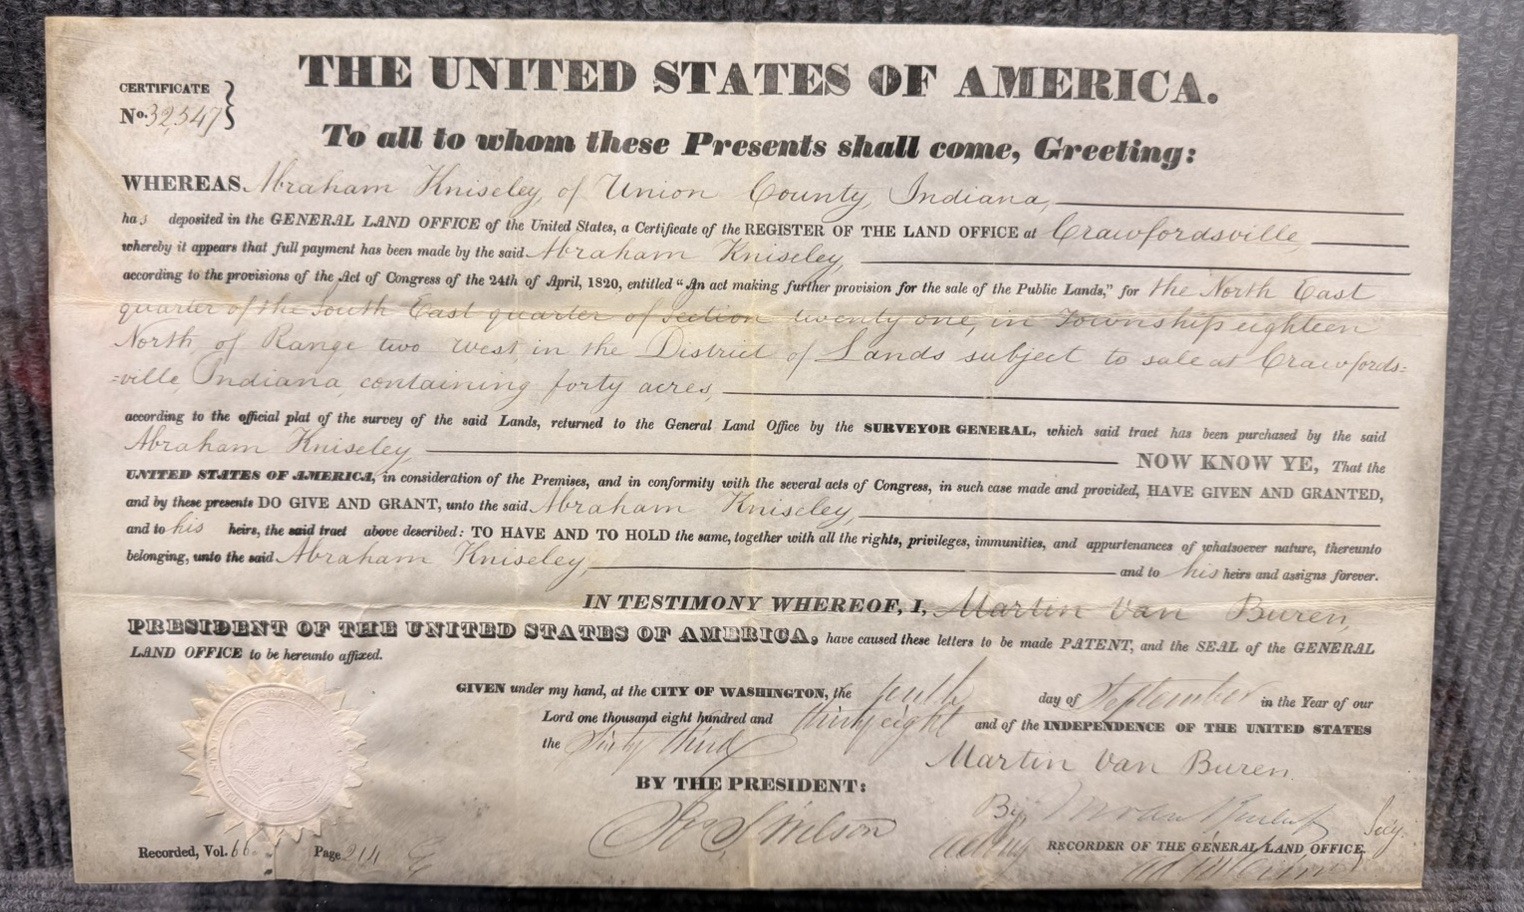 THE UNITED STATES OF AMERICA.
CERTIFICATE
No. 32,547
To all to whom these Presents shall come, Greeting:
WHEREAS Abraham Kniseley, of Union County, Indiana,
has deposited in the GENERAL LAND OFFICE of the United States, a Certificate of the REGISTER OF THE LAND OFFICE at Crawfordsville
whereby it appears that full payment has been made by the said Abraham Kniseley,
according to the provisions of the Act of Congress of the 24th of April, 1820, entitled "An act making further provision for the sale of the Public Lands," for the North East
quarter of the South East quarter of Section twenty one, in Township eighteen
North of Range two West, in the District of Lands subject to sale at Crawfords=
=ville, Indiana, containing forty acres,
according to the official plat of the survey of the said Lands, returned to the General Land Office by the SURVEYOR GENERAL, which said tract has been purchased by the said
Abraham Kniseley NOW KNOW YE, That the
UNITED STATES OF AMERICA, in consideration of the Premises, and in conformity with the several acts of Congress, in such case made and provided, HAVE GIVEN AND GRANTED,
and by these presents DO GIVE AND GRANT, unto the said Abraham Kniseley,
and to his heirs, the said tract above described: TO HAVE AND TO HOLD the same, together with all the rights, privileges, immunities, and appurtenances of whatsoever nature, thereunto
belonging, unto the said Abraham Kniseley, and to his heirs and assigns forever.
IN TESTIMONY WHEREOF, I, Martin Van Buren,
PRESIDENT OF THE UNITED STATES OF AMERICA, have caused these letters to be made PATENT, and the SEAL of the GENERAL
LAND OFFICE to be hereunto affixed.
GIVEN under my hand, at the CITY OF WASHINGTON, the tenth day of September in the Year of our
Lord one thousand eight hundred and thirty eight and of the INDEPENDENCE OF THE UNITED STATES
the Sixty third
Martin Van Buren
BY THE PRESIDENT:
By Secy.
Jos. S. Wilson
Acting RECORDER OF THE GENERAL LAND OFFICE
ad interim
Recorded, Vol. 66 Page 214